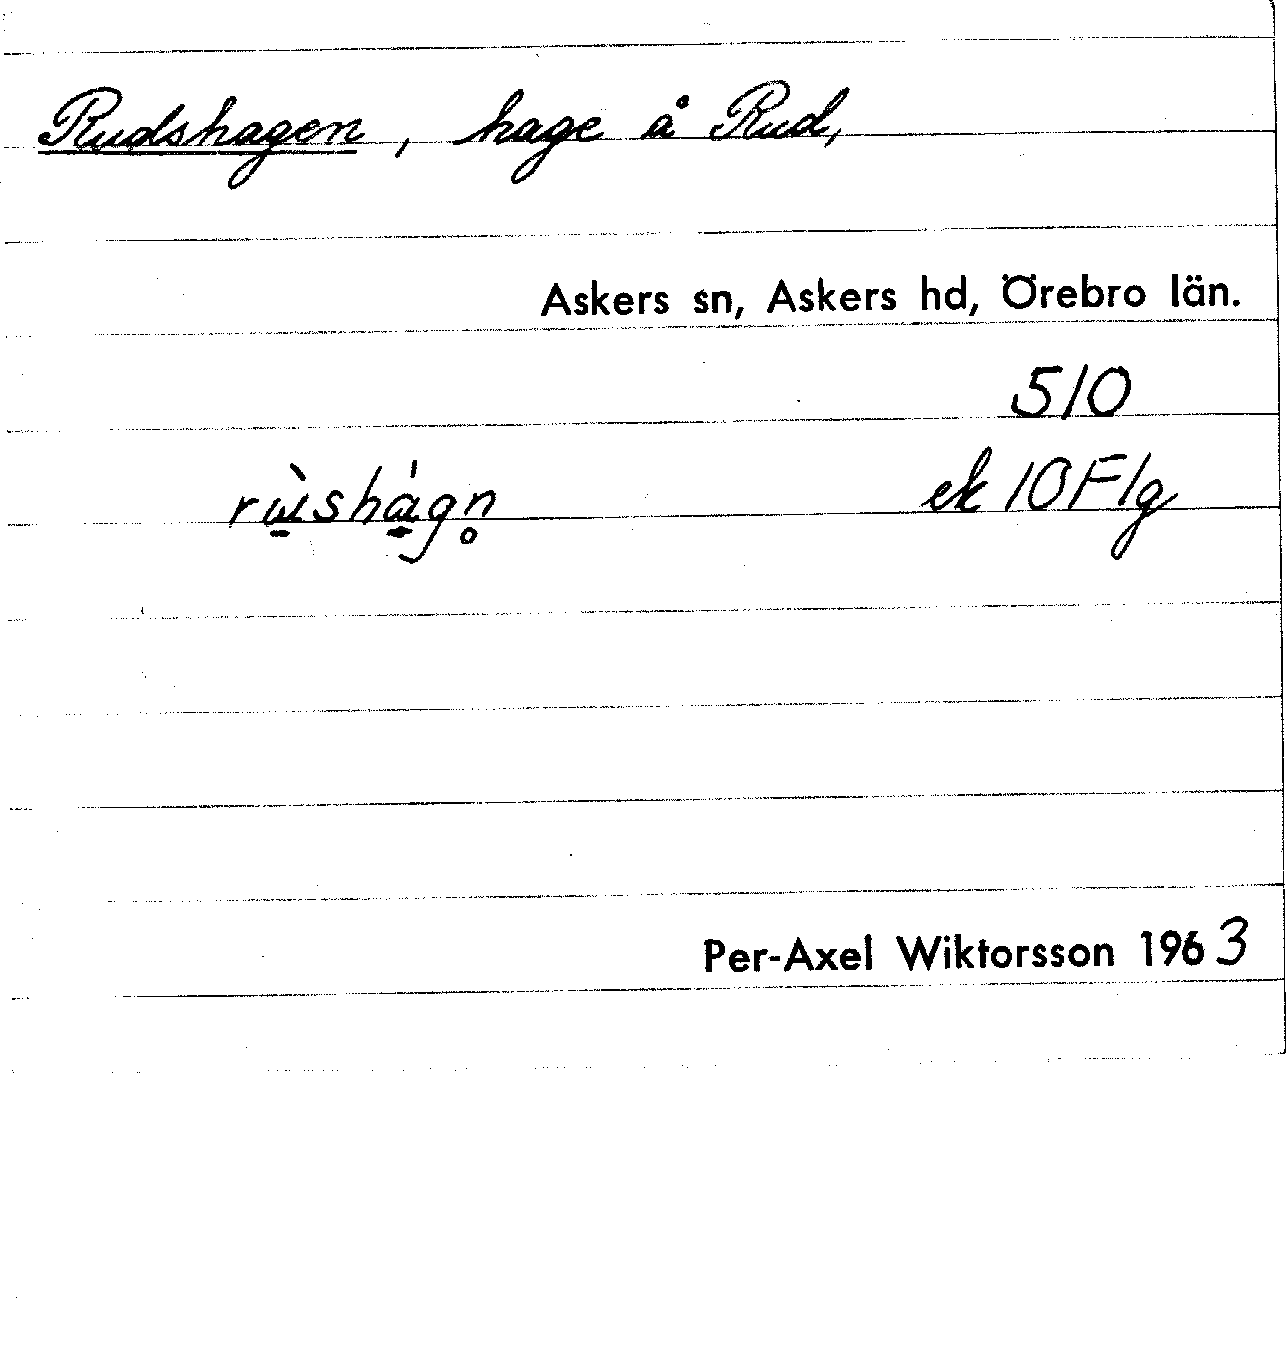 Rudshagen, hage å Rud,
Askers sn, Askers hd, Örebro län.
510
ek 10F1g
Per-Axel Wiktorsson 1963